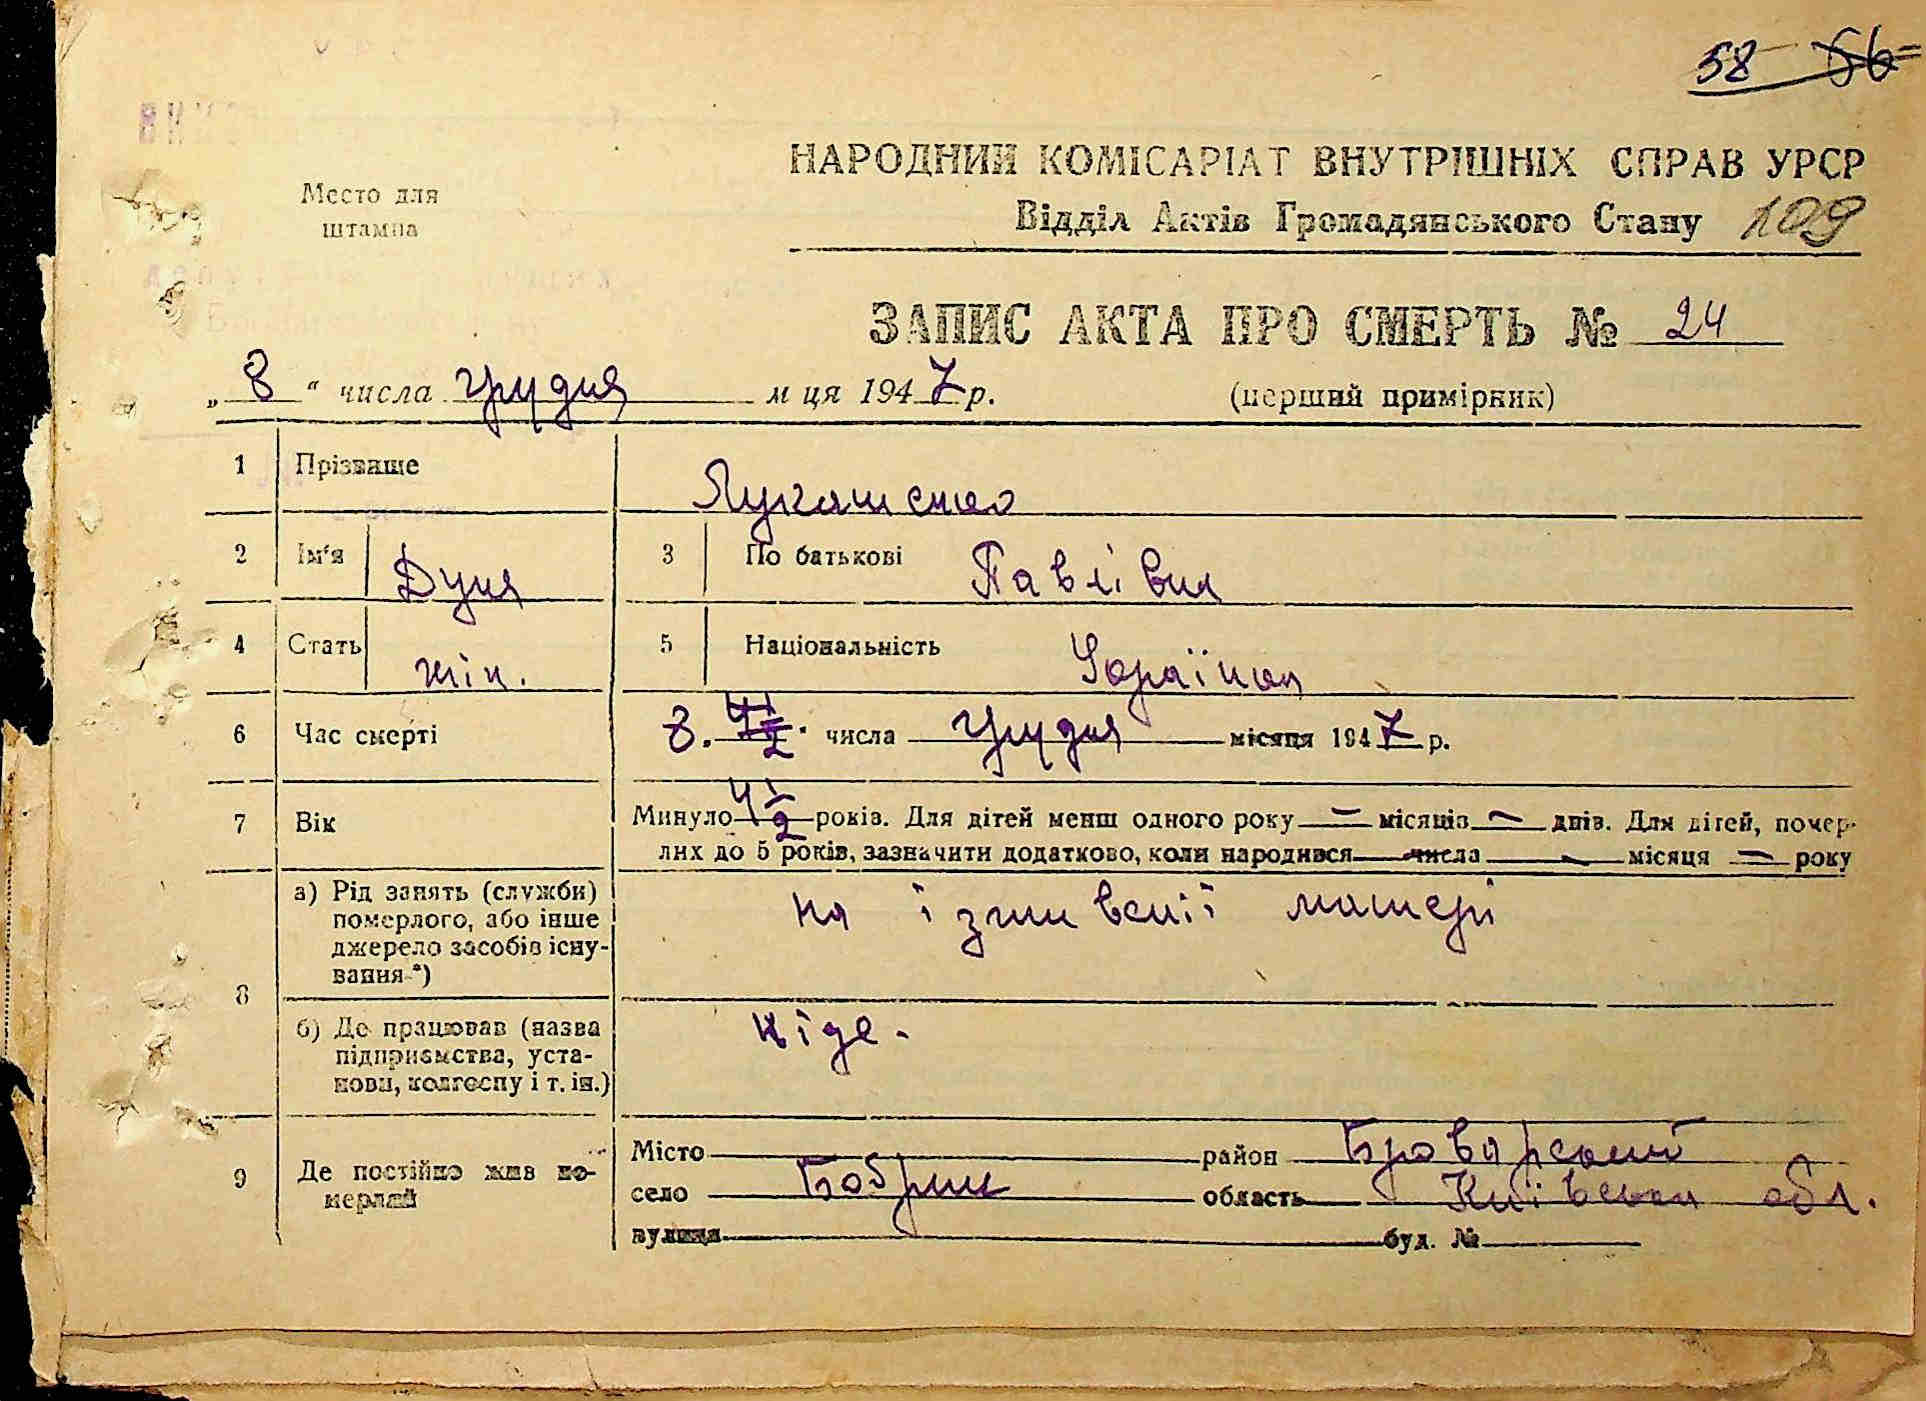 58 56
НАРОДНИЙ КОМІСАРІАТ ВНУТРІШНІХ СПРАВ УРСР
Место для
штампа
Відділ Актів Громадянського Стану 109
ЗАПИС АКТА ПРО СМЕРТЬ № 24
„ 8 “ числа грудня м ця 1947 р. (перший примірник)
1 Прізвище Лукашенко
2 Ім'я Дуня 3 По батькові Павлівна
4 Стать жін. 5 Національність Українка
6 Час смерті 8. 4 1/2. числа грудня місяця 1947 р.
7 Вік Минуло 4 1/2 років. Для дітей менш одного року — місяців — днів. Для дітей, помер-
лих до 5 років, зазначити додатково, коли народився — числа — місяця — року
8 а) Рід занять (служби)
померлого, або інше
джерело засобів існу-
вання *) на іждивенії матері
б) Де працював (назва
підприємства, уста-
нови, колгоспу і т. ін.) ніде.
9 Де постійно жив по-
мерлий
Місто район Броварський
село Бобрик область Київська обл.
вулиця буд. №